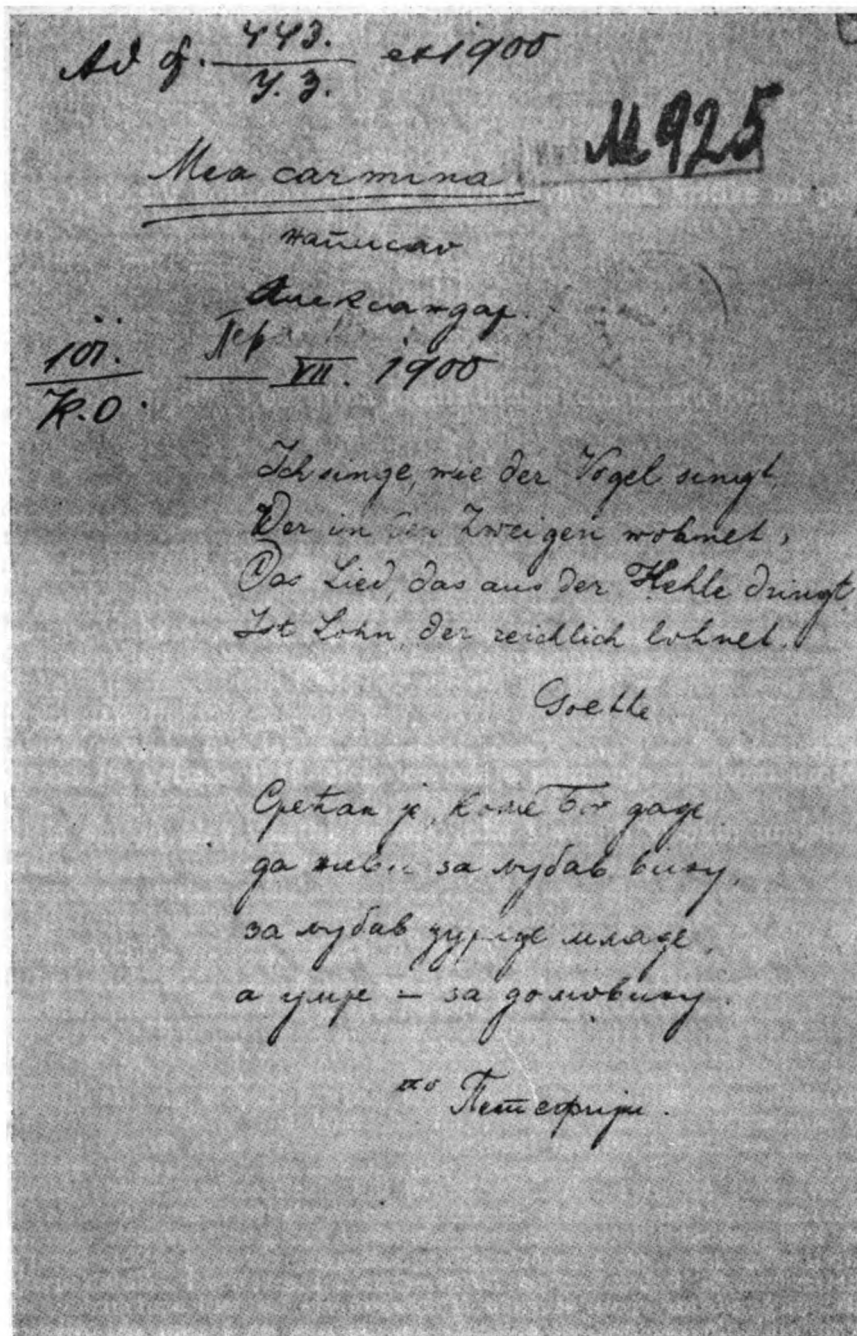 Ad of. 443. ex 1900
У.З.
M 925
Mea carmina
написао
Александар
101.
K.O.
VII. 1900
Ich singe, wie der Vogel singt
Der in den Zweigen wohnet,
Das Lied, das aus der Kehle dringt,
Ist Lohn, der reichlich lohnet.
Goethe
Срећан је, коме Бог даде
да живи за љубав вину,
за љубав цурице младе,
а умре – за домовину.
по Петефију.